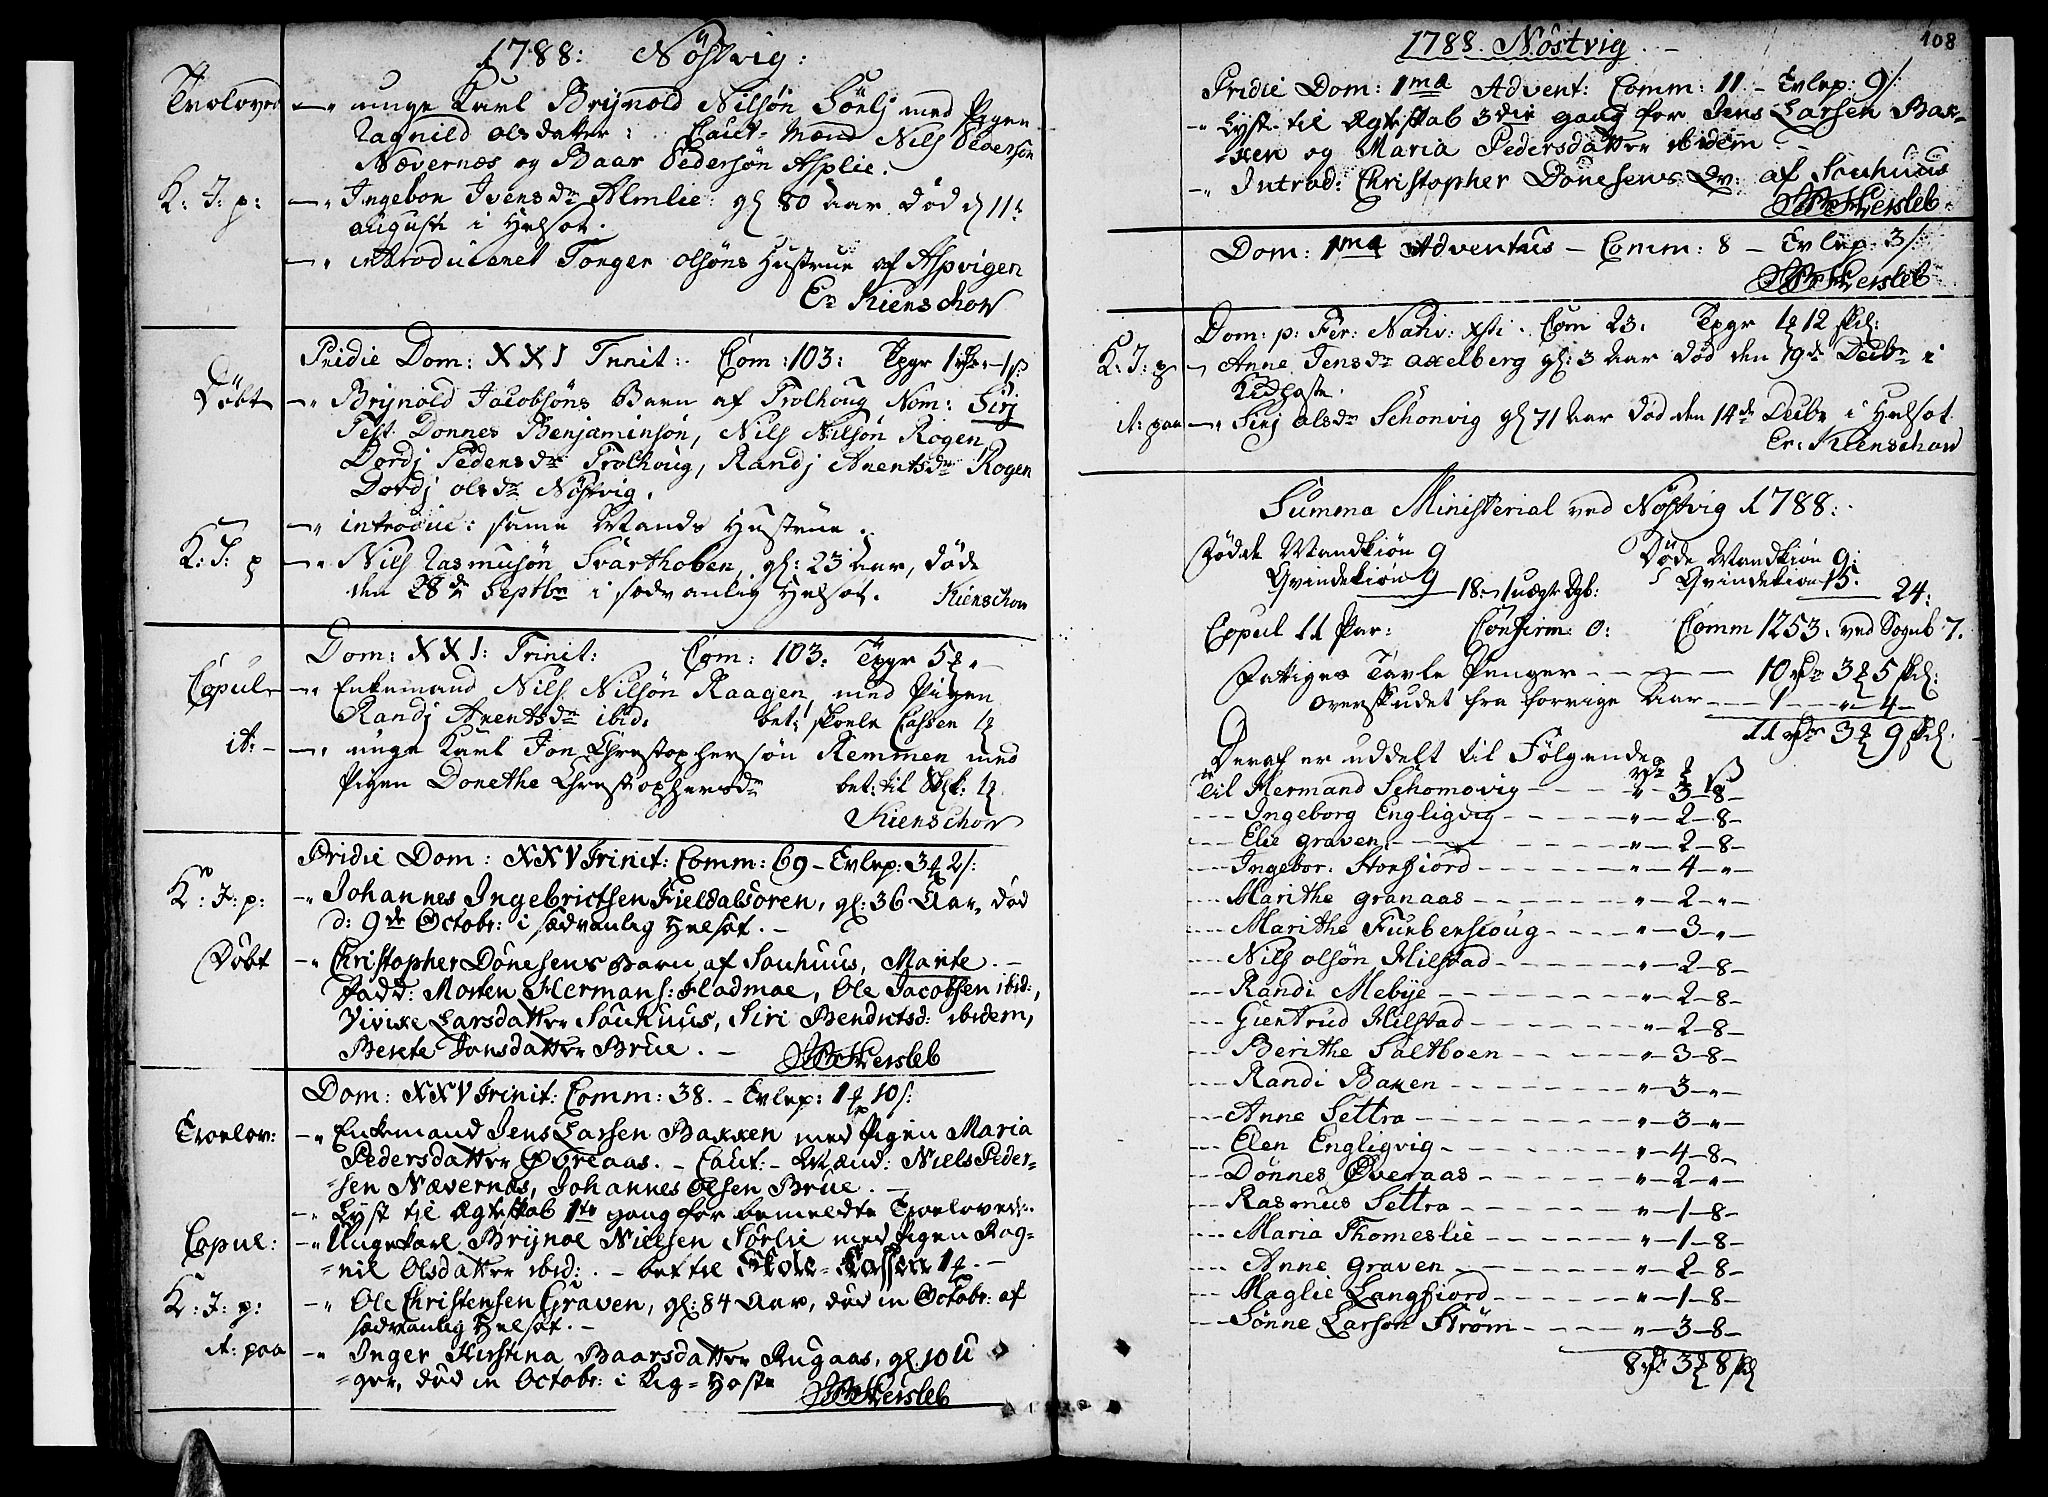 1788: Nöstvig:
Troloved —" unge Karl Brÿnold Nilsön Sörlj med Pigen
Ragnild olsdatter: Caut-Mænd Nils Pederson
Nævernæs og Baar Pedersön Asplie.
K: J: p: —" Ingebor Ivensdr Almlie: gl 80 Aar død d 11t
augusti i Helsot.
—" introduceret Tonger olsöns Hustrue af Aspvigen
Er Kienschow
Pridie Dom: XXI Trinit: Com: 103: Tpgr 1
Döbt —" Brÿnold Jacobsöns Barn af Trolhoug Nom: Sirj
Test. Donnes Benjaminsön, Nils Nilsön Rogen
Dordj Pedersdr Trolhoug, Randj Arentsdr Rogen
Dordj olsdr Nöstvig.
—" introduc: samme Mands Hustrue.
K: J: p —" Nils Rasmusön Svarthoben, gl: 23 Aar, døde
den 28de Septbr i sædvanlig Helsot. Kienschow
Dom: XXI: Trinit: Com: 103: Tpgr 5
Copul —" Enkemand Nils Nilsön Raagen, med Pigen
Randj Arentsdr ibid. bet: skole Cassen 1
it: — —" unge Karl Jon Christophersön Remmen med
Pigen Donethe Christophersdr bet: til Skk: 1
Kienschow
Pridie Dom: XXV Trinit: Comm: 69 – Tvlep: 3 2/:
K: J: p: —" Johannes Ingebrictsen Fieldalsoren, gl: 36 Aar, død
d: 9de Octobr: i sædvanlig Helsot. –
Döbt —" Christopher Dönesens Barn af Souhuus, Marite. –
Fadd: Morten Hermans: Fladmae, Ole Jacobsen ibid:,
Vivike Larsdatter Souhuus, Siri Bendictsd: ibidem,
Berete Jonsdatter Brüe. – Hersleb
Dom: XXV Trinit: Comm: 38. – Tvlep: 1 10/:
Troelov: —" Enkemand Jens Larsen Bakken med Pigen Maria
Pedersdatter Overaas. – Caut: – Mænd: Niels Peder=
=sen Nævernæs, Johannes Olsen Brüe. –
—" Lyst til Ægteskab 1te gang for bemeldte Troelovede.
Copul: —" Ungekarl Brÿnol Nielsen Sörlie med Pigen Rag=
=nil Olsdatter ibid: . – bet til Skole=Cassen 1 . –
K: J: p: —" Ole Christensen Graven, gl: 84 Aar, død in Octobr: af
sædvanlig Helsot. –
it: paa —" Inger Kirstina Baarsdatter Rugaas, gl. 10 U
=ger, død in Octobr: i Kig=Hoste Hersleb
1788. Nöstvig. – 108
Pridie Dom: 1ma Advent: Comm: 11 – Tvlep: 9/:
—" Lyst til Ægteskab 3die gang for Jens Larsen Bak=
=ken og Maria Pedersdatter ibidem
—" Introd: Christopher Donesens Qv: af Souhuus
Hersleb
Dom: 1ma Adventus – Comm: 8 – Tvlep: 3/:
Hersleb
Dom: p: Fer: Nativ: Xsti. Com 23. Tpgr 1 12 skl:
K: J: p —" Anne Jensdr axelberg gl: 3 Aar død den 19de Decbr i
Kidhoste.
it: paa —" Sirj olsdr Schonvig gl 71 Aar død den 14de Decbr i Helsot
Er: Kienschow
Summa Ministerial ved Nöstvig 1788:
Fødde Mandkiön 9 Døde Mandkiön 9:
Qvindekiön 9 Qvindekiön 15.
18: 1 uægte Dgb: 24:
Copul 11 Par: Confirm: 0: Comm 1253. ved Sognb 7.
Fattiges Tavle Penger – – – 10 3 5 skl:
overskudet fra forrige Aar – – – 1 – " – 4 –
11 3 9 skl:
Deraf er uddelt til Følgende
til Hermand Schomovig – – – " – 3 – 8 –
--- Ingeborg Engligvig – – – " – 2 – 8 –
--- Elie graven – – – " – 2 – 8 –
--- Ingebor: Storfiord – – – " – 4 – " –
--- Marithe granaas – – – " – 2 – " –
--- Marithe Furberskoug – – – " – 3 – " –
--- Nils olsön Hilstad – – – " – 2 – 8 –
--- Randi Mebÿe – – – " – 2 – 8 –
--- Giertrud Hilstad – – – " – 2 – 8 –
--- Berithe Saltboen – – – " – 3 – 8 –
--- Randi Baken – – – " – 3 – " –
--- Anne Settra – – – " – 3 – " –
--- Elen Engligvig – – – " – 4 – 8 –
--- Dönnes Overaas – – – " – 2 – " –
--- Rasmus Settra – – – " – 1 – 8 –
--- Maria Thomeslie – – – " – 1 – 8 –
--- Anne graven – – – " – 2 – 8 –
--- Maglie Langfiord – – – " – 1 – 8 –
--- Sönne Larson Ström – – – " – 3 – 8 –
8 3 8 skl